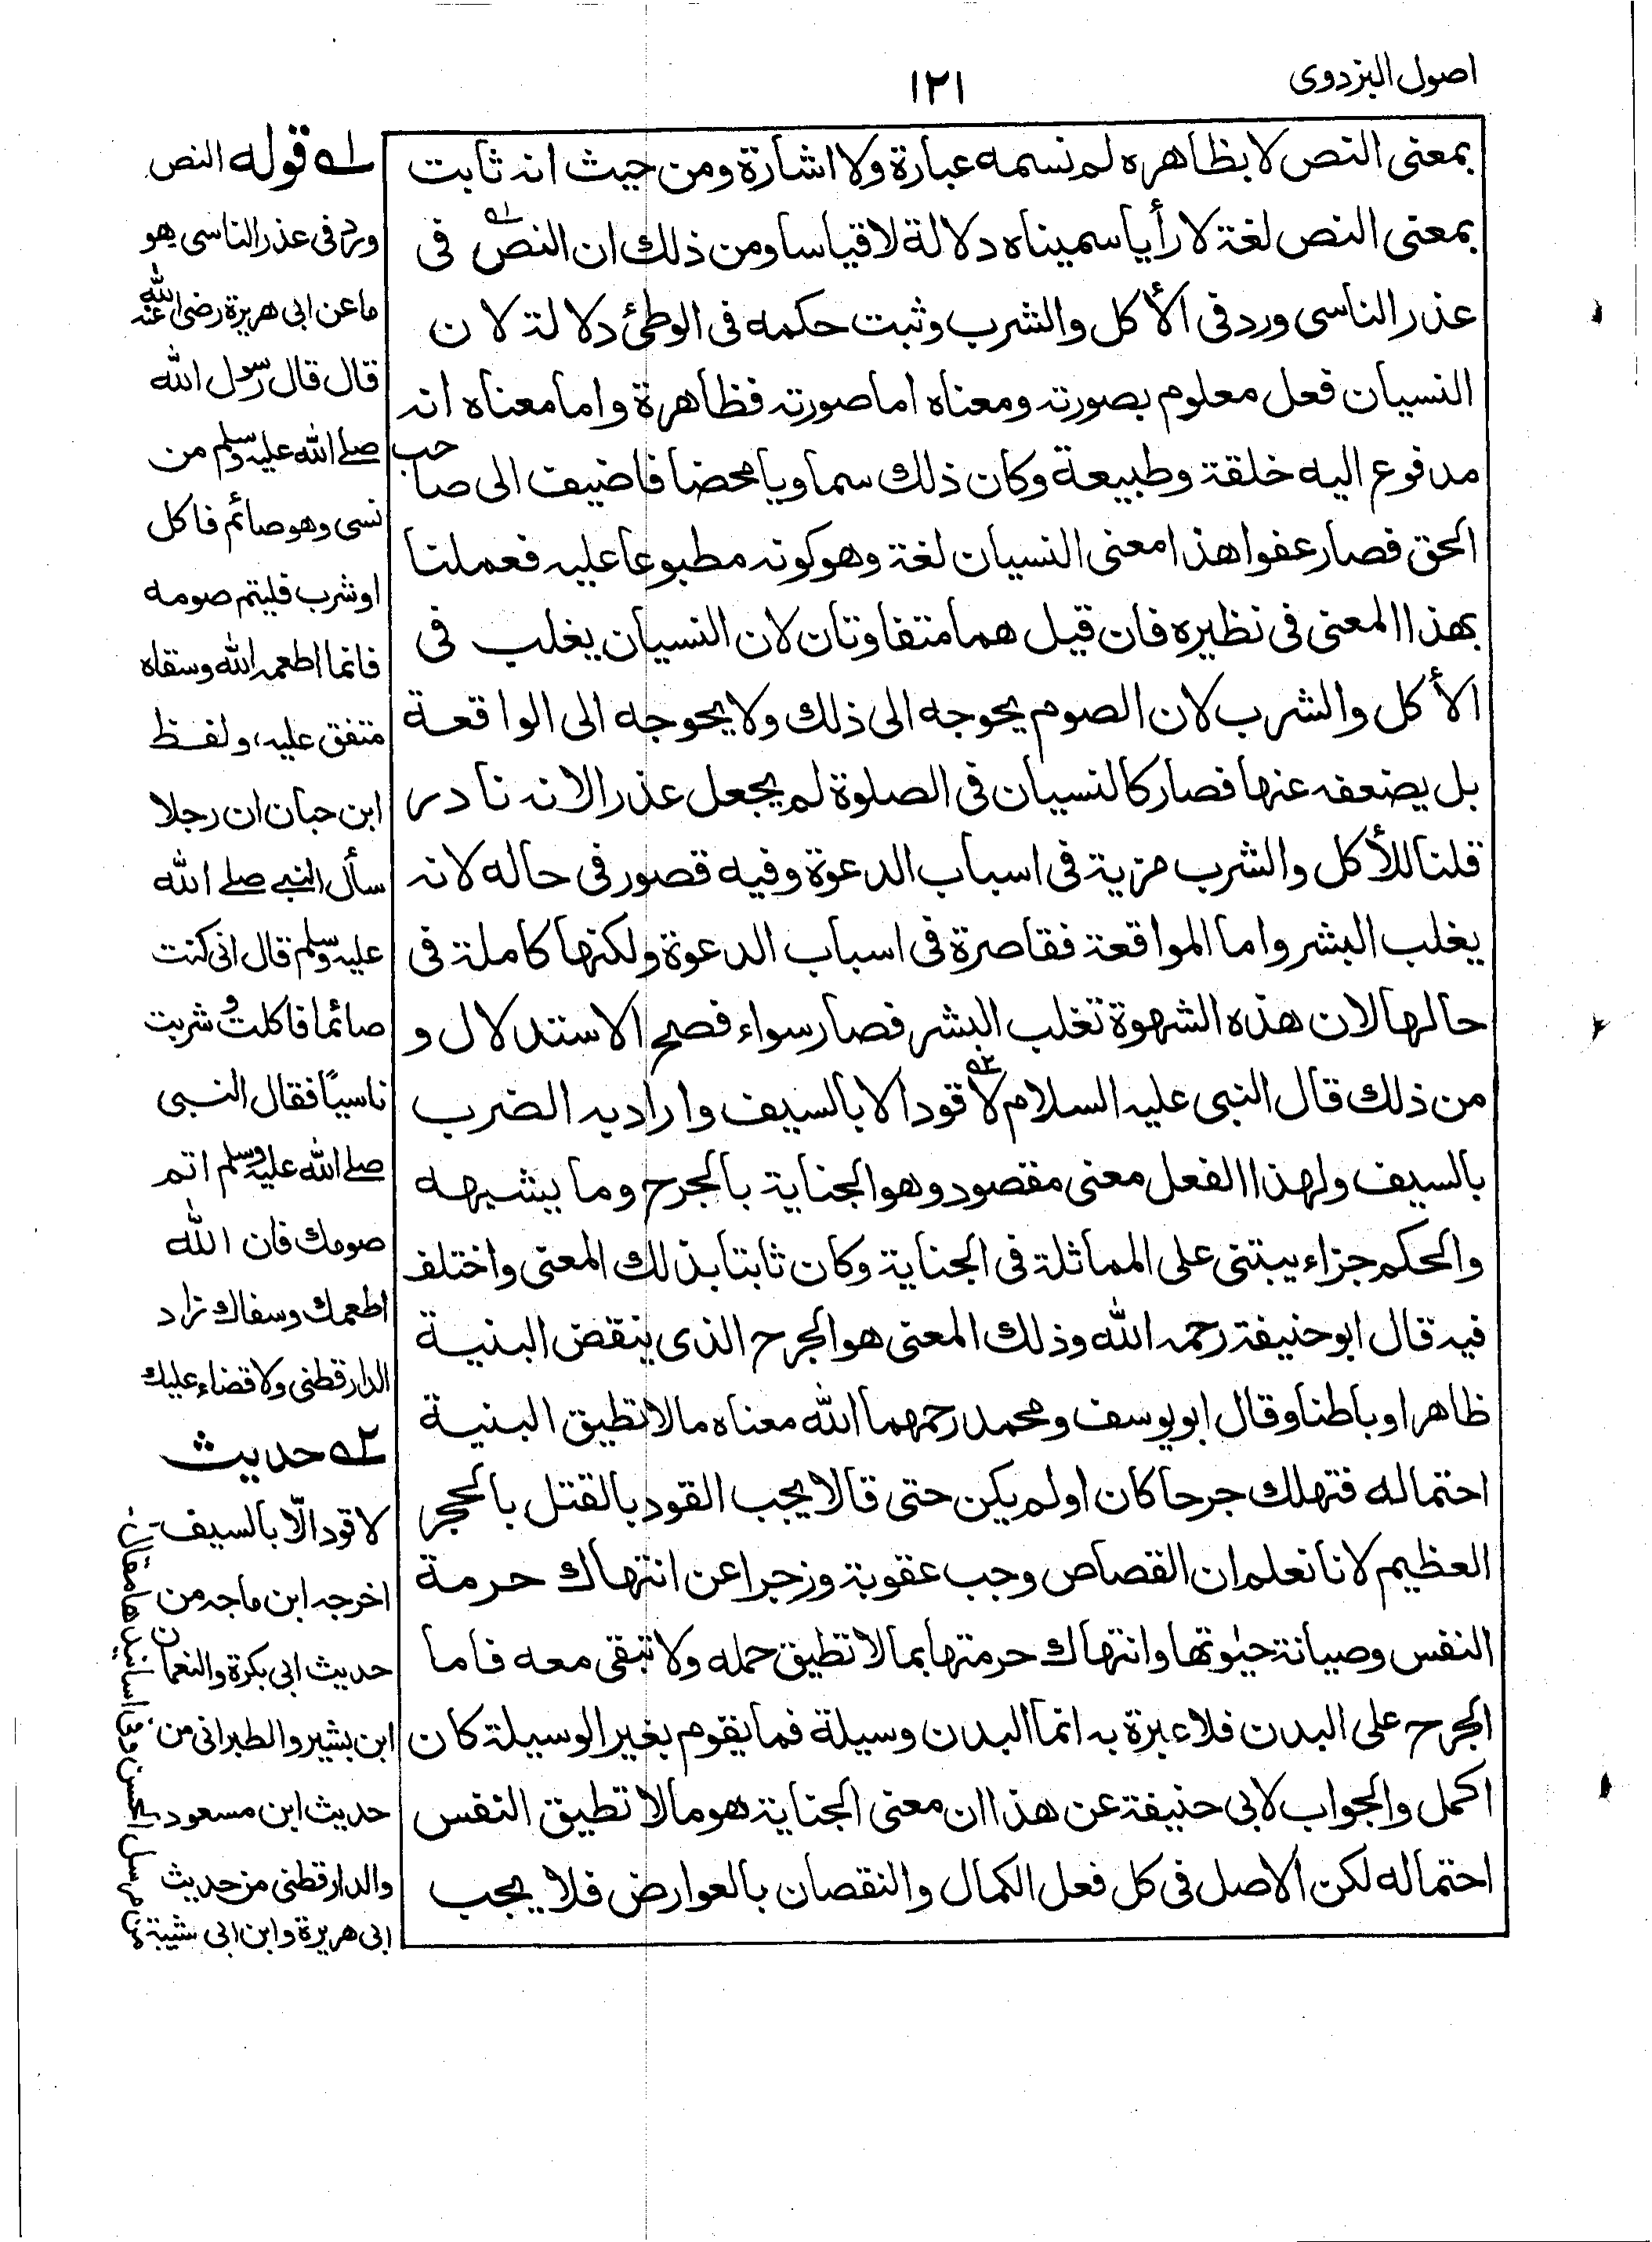 اصول البزدوی
۱۲۱
بمعنى النص لا بظاهره لم نسمه عبارة ولا اشارة ومن حيث انه ثابت
بمعنى النص لغة لا رأيا سميناه دلالة لا قياسا ومن ذلك ان النص ۱ه فى
عذر الناسى ورد فى الأكل والشرب وثبت حكمه فى الوطئ دلالة لان
النسيان فعل معلوم بصورته ومعناه اما صورته فظاهرة واما معناه انه
مدفوع اليه خلقة وطبيعة وكان ذلك سماويا محضا فاضيف الى صاحب
الحق فصار عفوا هذا معنى النسيان لغة وهو كونه مطبوعا عليه فعملنا
بهذا المعنى فى نظيره فان قيل هما متفاوتان لان النسيان يغلب فى
الأكل والشرب لان الصوم يحوجه الى ذلك ولا يحوجه الى الواقعة
بل يضعفه عنها فصار كالنسيان فى الصلوة لم يجعل عذرا لانه نادر
قلنا للأكل والشرب مزية فى اسباب الدعوة وفيه قصور فى حاله لانه
يغلب البشر واما المواقعة فقاصرة فى اسباب الدعوة ولكنها كاملة فى
حالها لان هذه الشهوة تغلب البشر فصار سواء فصح الاستدلال و
من ذلك قال النبى عليه السلام ۲ه لا قود الا بالسيف واراد به الضرب
بالسيف ولهذا الفعل معنى مقصود وهو الجناية بالجرح وما يشبهه
والحكم جزاء يبتنى على المماثلة فى الجناية وكان ثابتا بذلك المعنى واختلف
فيه قال ابو حنيفة رحمه الله وذلك المعنى هو الجرح الذى ينقض البنية
ظاهرا وباطنا وقال ابو يوسف ومحمد رحمهما الله معناه ما لا تطيق البنية
احتماله فتهلك جرحا كان او لم يكن حتى قالا يجب القود بالقتل بالحجر
العظيم لانا نعلم ان القصاص وجب عقوبة وزجرا عن انتهاك حرمة
النفس وصيانة حيوتها وانتهاك حرمتها بما لا تطيق حمله ولا تبقى معه فاما
الجرح على البدن فلا عبرة به انما البدن وسيلة فما يقوم بغير الوسيلة كان
اكمل والجواب لابى حنيفة عن هذا ان معنى الجناية هو ما لا تطيق النفس
احتماله لكن الاصل فى كل فعل الكمال والنقصان بالعوارض فلا يجب
۱ه قوله النص
ورد فى عذر الناسى هو
ما عن ابى هريرة رضى الله عنه
قال قال رسول الله
صلے الله عليه وسلم من
نسى وهو صائم فاكل
او شرب فليتم صومه
فانما اطعمه الله وسقاه
متفق عليه، ولفظ
ابن حبان ان رجلا
سأل النبى صلے الله
عليه وسلم قال انى كنت
صائما فاكلت و شربت
ناسيًا فقال النبى
صلے الله عليه وسلم اتم
صومك فان الله
اطعمك وسقاك زاد
الدارقطنى ولا قضاء عليك
۲ه حديث
لا قود الّا بالسيف-
اخرجه ابن ماجه من
حديث ابى بكرة والنعمان
ابن بشير والطبرانى من
حديث ابن مسعود
والدارقطنى من حديث
ابى هريرة وابن ابى شيبة
من مرسل الحسن وفى اسانيدها مقال